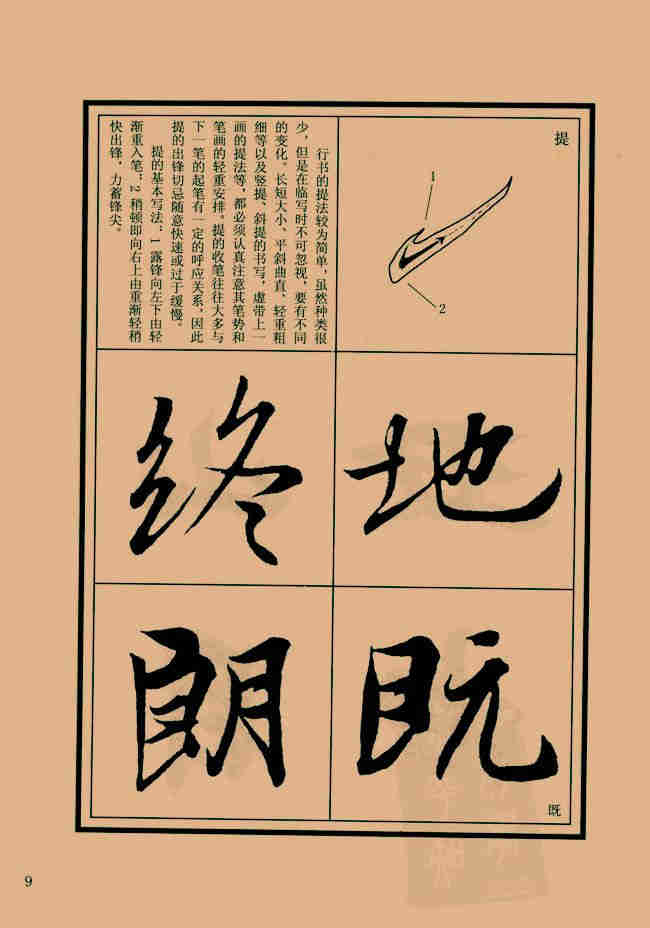 提
1
2
行书的提法较为简单，虽然种类很
少，但是在临写时不可忽视，要有不同
的变化。长短大小、平斜曲直、轻重粗
细等以及竖提、斜提的书写，虚带上一
画的提法等，都必须认真注意其笔势和
笔画的轻重安排。提的收笔往往大多与
下一笔的起笔有一定的呼应关系，因此
提的出锋切忌随意快速或过于缓慢。
提的基本写法：1露锋向左下由轻
渐重入笔；2稍顿即向右上由重渐轻稍
快出锋，力蓄锋尖。
地
终
既
既
朗
9